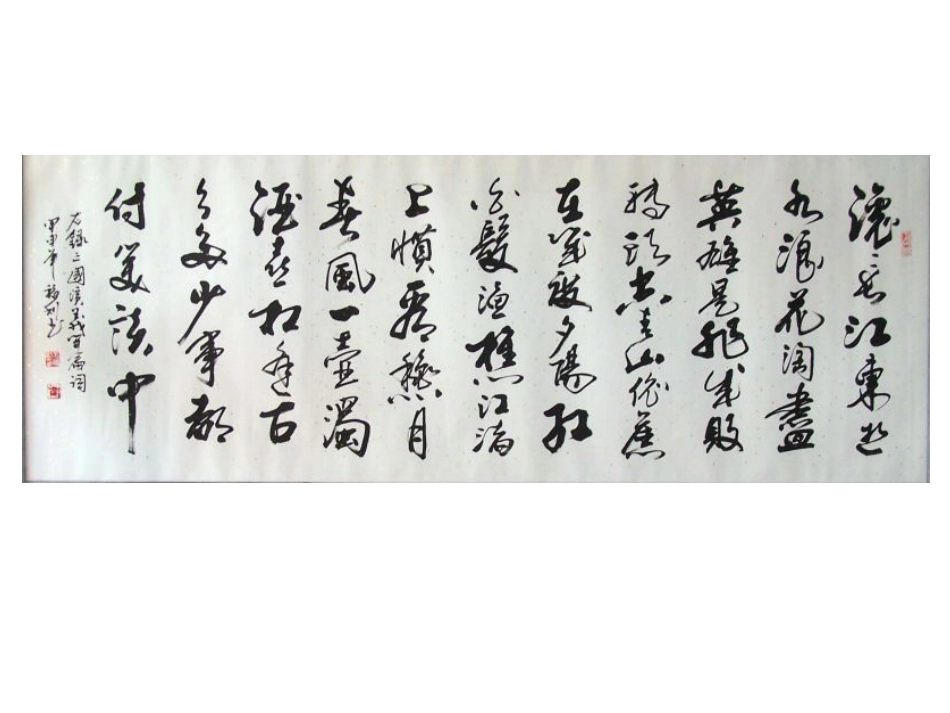 滾々長江東逝
水浪花淘盡
英雄是非成敗
轉頭空青山依舊
在幾度夕陽紅
白髮漁樵江渚
上慣看龝月
春風一壺濁
酒喜相逢古
今多少事都
付笑談中
右錄三國演義開篇詞
甲申年